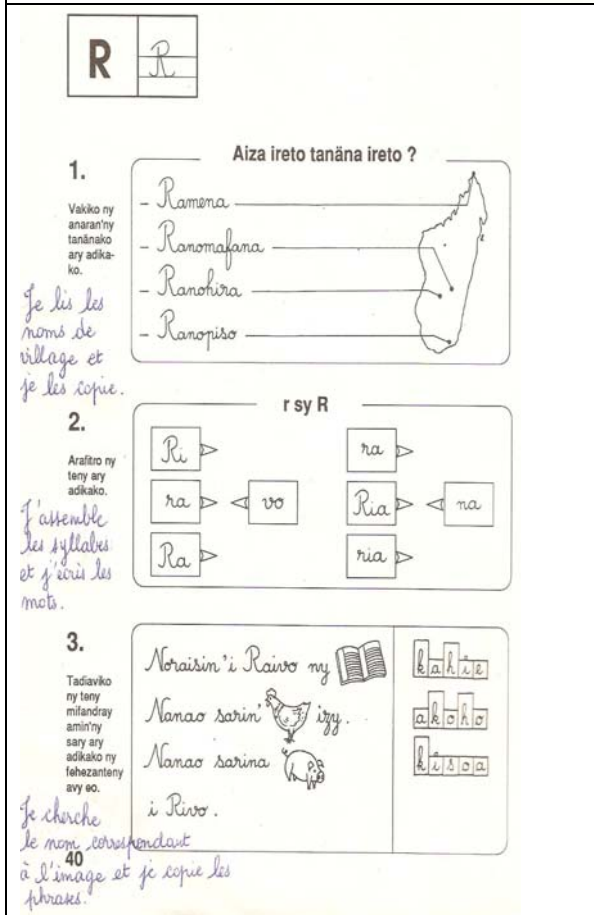 R R
Aiza ireto tanäna ireto ?
1.
Vakiko ny
anaran'ny
tanänako
ary adika-
ko.
Je lis les
noms de
village et
je les copie.
– Ramena
– Ranomafana
– Ranohira
– Ranopiso
r sy R
2.
Arafitro ny
teny ary
adikako.
J'assemble
les syllabes
et j'écris les
mots.
Ri
ra vo
Ra
ra
Ria na
ria
3.
Tadiaviko
ny teny
mifandray
amin'ny
sary ary
adikako ny
fehezanteny
avy eo.
Je cherche
le nom correspondant
à l'image et je copie les
phrases.
Noraisin'i Raivo ny
Nanao sarin' izy.
Nanao sarina
i Rivo.
kahie
akoho
kisoa
40